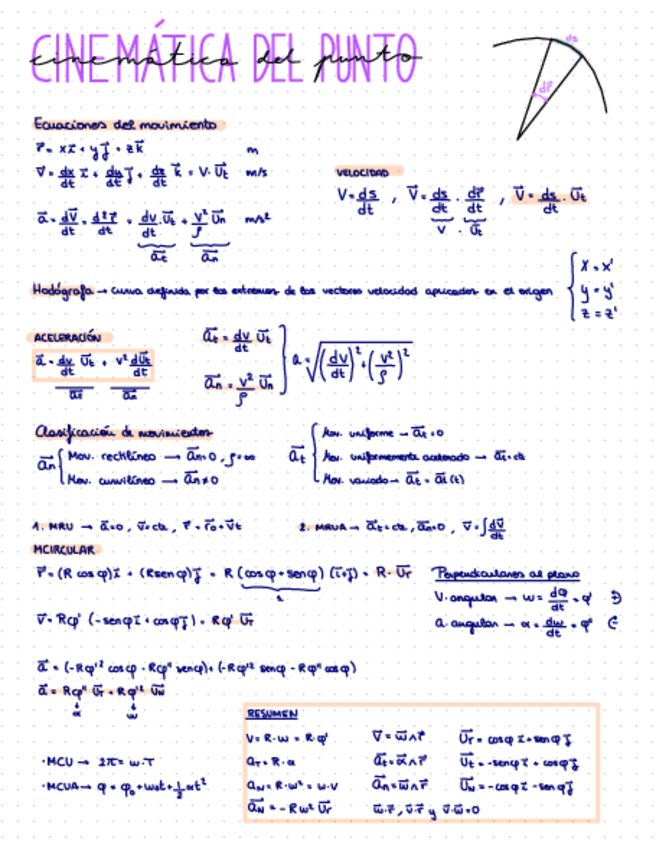 CINEMÁTICA DEL PUNTO
cinemática del punto
ds
dr⃗
Ecuaciones del movimiento
r⃗ = xi⃗ + yj⃗ + zk⃗ m
v⃗ = dx/dt i⃗ + dy/dt j⃗ + dz/dt k⃗ = v · U⃗t m/s
a⃗ = dv⃗/dt = d²r⃗/dt = dv/dt · U⃗t + v²/ρ U⃗n m/s²
a⃗t a⃗n
VELOCIDAD
V = ds/dt , V⃗ = ds/dt · dr⃗/dt , V⃗ = ds/dt · U⃗t
V · U⃗t
Hodógrafa → curva definida por los extremos de los vectores velocidad aplicados en el origen
x = x'
y = y'
z = z'
ACELERACIÓN
a⃗ = dv/dt U⃗t + v² dU⃗t/dt
a⃗t a⃗n
a⃗t = dv/dt U⃗t
a⃗n = v²/ρ U⃗n
a = √((dv/dt)² + (v²/ρ)²)
Clasificación de movimientos
a⃗n
Mov. rectilíneo → a⃗n=0, ρ=∞
Mov. curvilíneo → a⃗n≠0
a⃗t
Mov. uniforme → a⃗t=0
Mov. uniformemente acelerado → a⃗t=cte
Mov. variado → a⃗t = a⃗t(t)
1. MRU → a⃗=0, v⃗=cte, r⃗ = r⃗0+v⃗t
2. MRUA → a⃗t=cte, a⃗n=0, v⃗=∫dv⃗/dt
MCIRCULAR
r⃗ = (R cos φ)i⃗ + (R sen φ)j⃗ = R (cos φ + sen φ) (i⃗+j⃗) = R · U⃗r
1
v⃗ = Rφ' (-sen φi⃗ + cos φj⃗) = Rφ' U⃗r
Perpendiculares al plano
V. angular → ω = dφ/dt = φ'
a. angular → α = dω/dt = φ''
a⃗ = (-Rφ'² cos φ - Rφ'' sen φ) + (-Rφ'² sen φ - Rφ'' cos φ)
a⃗ = Rφ'' U⃗r + Rφ'² U⃗N
α ω
· MCU → 2π = ω · T
· MCUA → φ = φ0 + ω0t + 1/2 αt²
RESUMEN
V = R · ω = R · φ' v⃗ = ω⃗ ∧ r⃗ U⃗r = cos φ i⃗ + sen φ j⃗
aT = R · α a⃗t = α⃗ ∧ r⃗ U⃗t = -sen φ i⃗ + cos φ j⃗
aN = R · ω² = ω · V a⃗n = ω⃗ ∧ r⃗ U⃗N = -cos φ i⃗ - sen φ j⃗
a⃗N = -Rω² U⃗r ω⃗·r⃗, v⃗·r⃗ y v⃗·ω⃗ = 0